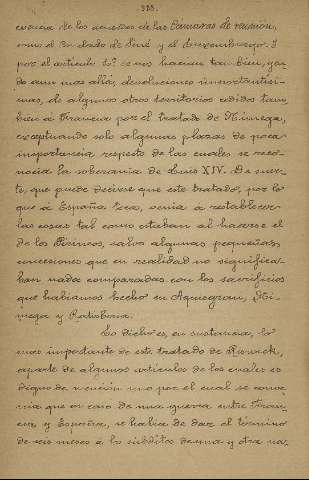 318.
cuencia de los acuerdos de las Cámaras de reunión,
como el Ducado de Luxemburgo. Y
por el artículo 10º se nos hacían también, yen-
do aun mas allá, devoluciones importantísi-
mas, de algunos otros territorios cedidos tam-
bien á Francia por el tratado de Nimega,
exceptuando solo algunas plazas de poca
importancia respecto de las cuales se reco-
nocía la soberanía de Luis XIV. De suer-
te, que puede decirse que este tratado, por lo
que á España toca, venía á restablecer
las cosas tal como estaban al hacerse el
de los Pirineos, salvo algunas pequeñas
concesiones que en realidad no significa-
ban nada comparadas con los sacrificios
que habíamos hecho en Aquisgran, Ni-
mega y Ratisbona.
Lo dicho es, en sustancia, lo
mas importante de este tratado de Riswick,
aparte de algunos artículos de los cuales es
digno de mención uno por el cual se conve-
nía que en caso de una guerra entre Fran-
cia y España, se había de dar el término
de seis meses á los súbditos de una y otra na-